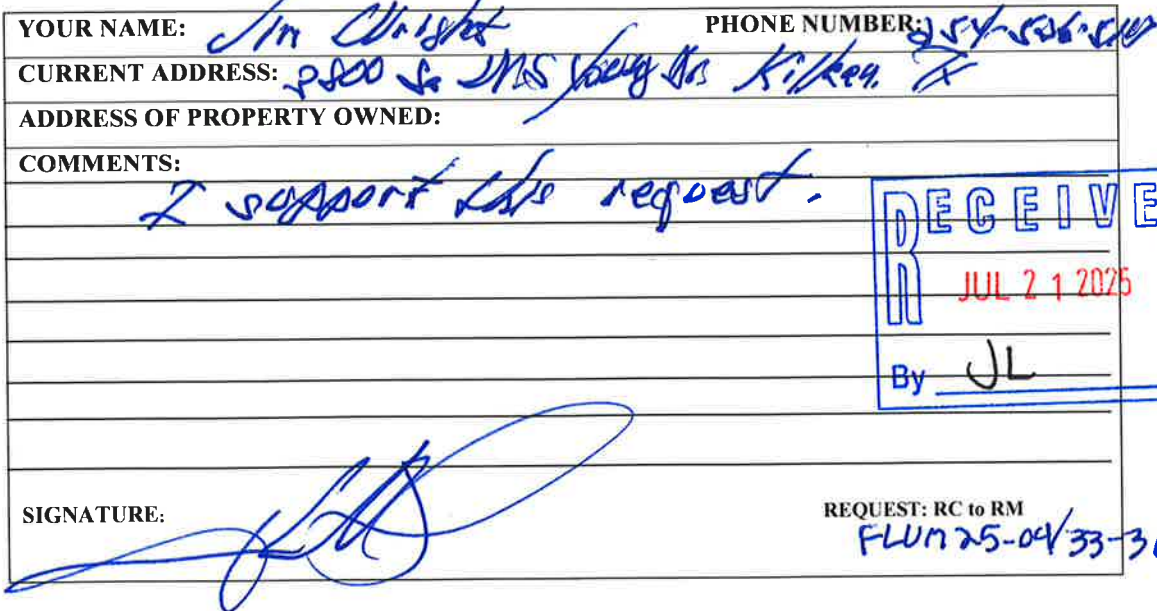 YOUR NAME: Jim Wright PHONE NUMBER: 254-526-
CURRENT ADDRESS: So Dr Killeen, TX
ADDRESS OF PROPERTY OWNED:
COMMENTS:
I support this request.
RECEIVE
JUL 21 2025
By JL
SIGNATURE:
REQUEST: RC to RM
FLUM 25-04/33-3